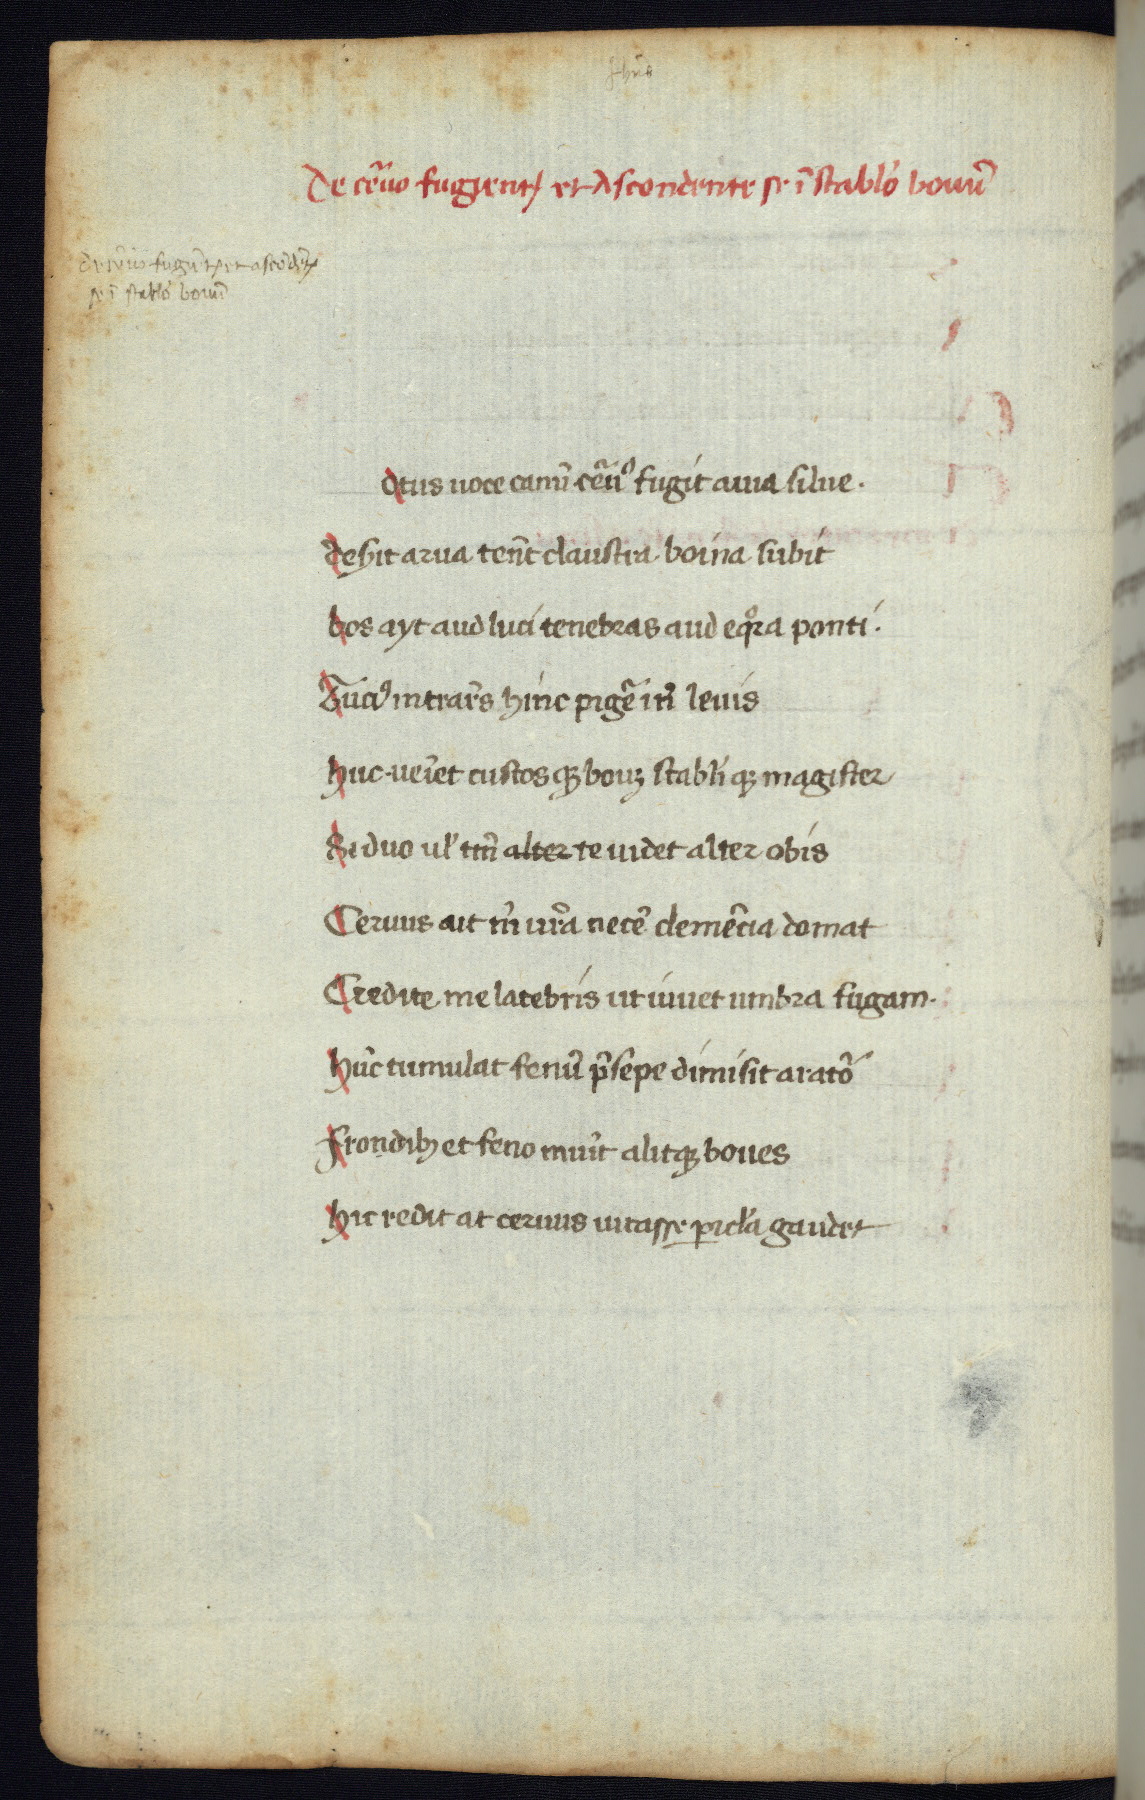 De cẽuo fugient̉ et ascondente se ĩ stablo bouũ
de cẽuo fugiẽt̉ et ascõdẽt̉
se ĩ stablo bouũ
otus uoce canũ cẽuꝰ fugit auia silue.
desit arua tenẽt claustra boina subit
bos ayt aud luci tenebras aud eqͦra ponti.
Tuciꝰ intrares hinc pigẽ it̃ leuis
huc ueiet custosqꝫ bouꝫ stabliqꝫ magister
Si duo ul' tm̃ alter te uidet alter obis
Ceruus ait m̃ iur̃a necẽ clemẽcia domat
Credite me latebris ut iuuet umbra fugam.
hũc tumulat fenũ p̃sepe dimisit aratõ
Frondibꝫ et feno muĩt alitqꝫ boues
hic redit at ceruus uitasse ꝑicĺa gaudet